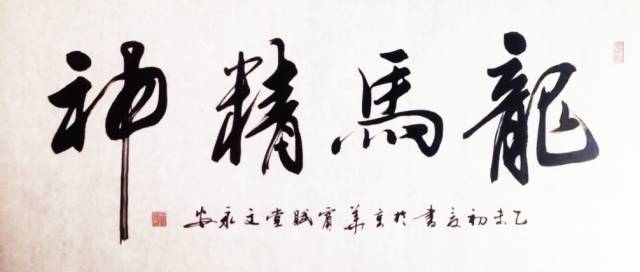 龍馬精神
乙未初夏書於京華寶賦堂文永安